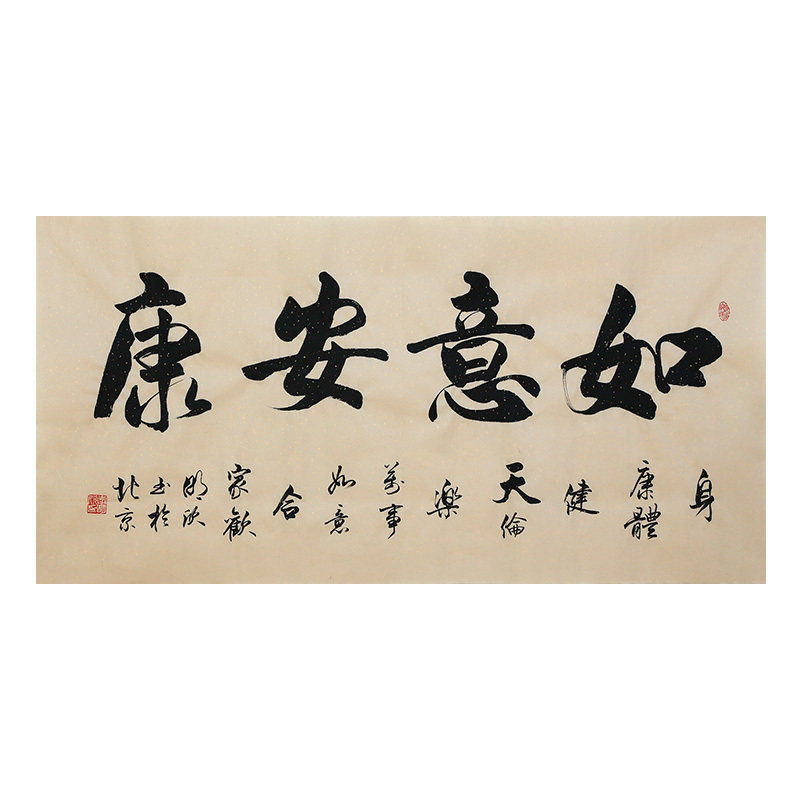 如意安康
身康體健天倫樂萬事如意合家歡
书於北京